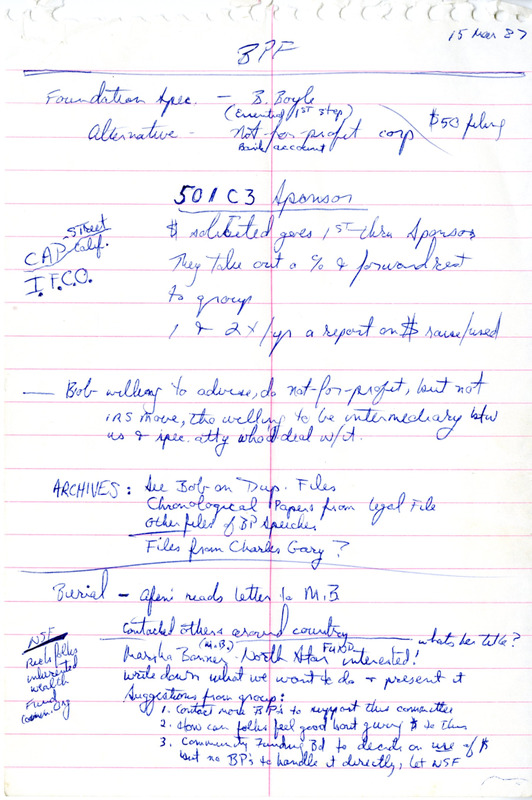 15 Mar 87
BPF
Foundation Spec. — B. Boyle
(Essential 1ST Step)
Alternative - Not-for-profit corp $50 filing
Bank account
501 C3 Sponsor
$ solicited goes 1ST thru Sponsor
They take out a % & forward rest
to group
1 & 2x/yr a report on $ raise/used
Street
CAP Calif.
I.F.C.O.
— Bob willing to advise, do not-for-profit, but not
IRS move, tho willing to be intermediary btw
us & spec. atty who'd deal w/it.
ARCHIVES: See Bob on Dup. Files
Chronological Papers from Legal File
Other files of BP Speeches
Files from Charles Gary?
Burial — Afeni reads letter to M.B.
Contacted others around country — whats her title?
(M.B.) FUND
Marsha Banner - North Star interested!
write down what we want to do & present it
Suggestions from group:
1. Contact more BP's to support this committee
2. How can folks feel good bout giving $ to this
3. Community Funding Bd to decide on use of $
but no BP's to handle it directly, let NSF
NSF
Rich folks
inherited
wealth
Fund
Commun. Org